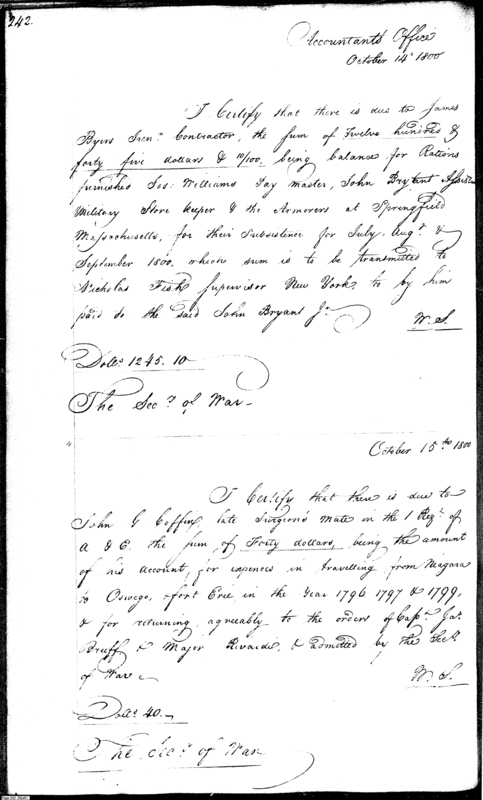 242.
Accountants Office
October 14th 1800
I Certify that there is due to James
Byers Senr. Contractor, the sum of Twelve hundred &
forty five dollars & 10/100, being balance for Rations
furnished Jos: Williams Pay Master, John Bryant
Military Store keeper & the Armorers at Springfield
Massachusetts, for their Subsistence for July, Augt. &
September 1800, which sum is to be transmitted to
Nicholas Fish Supervisor New York, to by him
paid to the said John Bryant Jr.
W. S.
Dolls. 1245. 10
The Secy. of War
October 15th 1800
I Certify that there is due to
John G Coffin, late Surgeon's Mate in the 1 Regt. of
A & E. the sum of Forty dollars, being the amount
of his account, for expences in travelling from Niagara
to Oswego, & fort Erie in the Year 1796 1797 & 1799,
& for returning agreeably to the orders of Capn. Jas.
Bruff & Major Rivardi, & admitted by the Secy.
of War
W. S.
Dolls. 40.
The Secy. of War